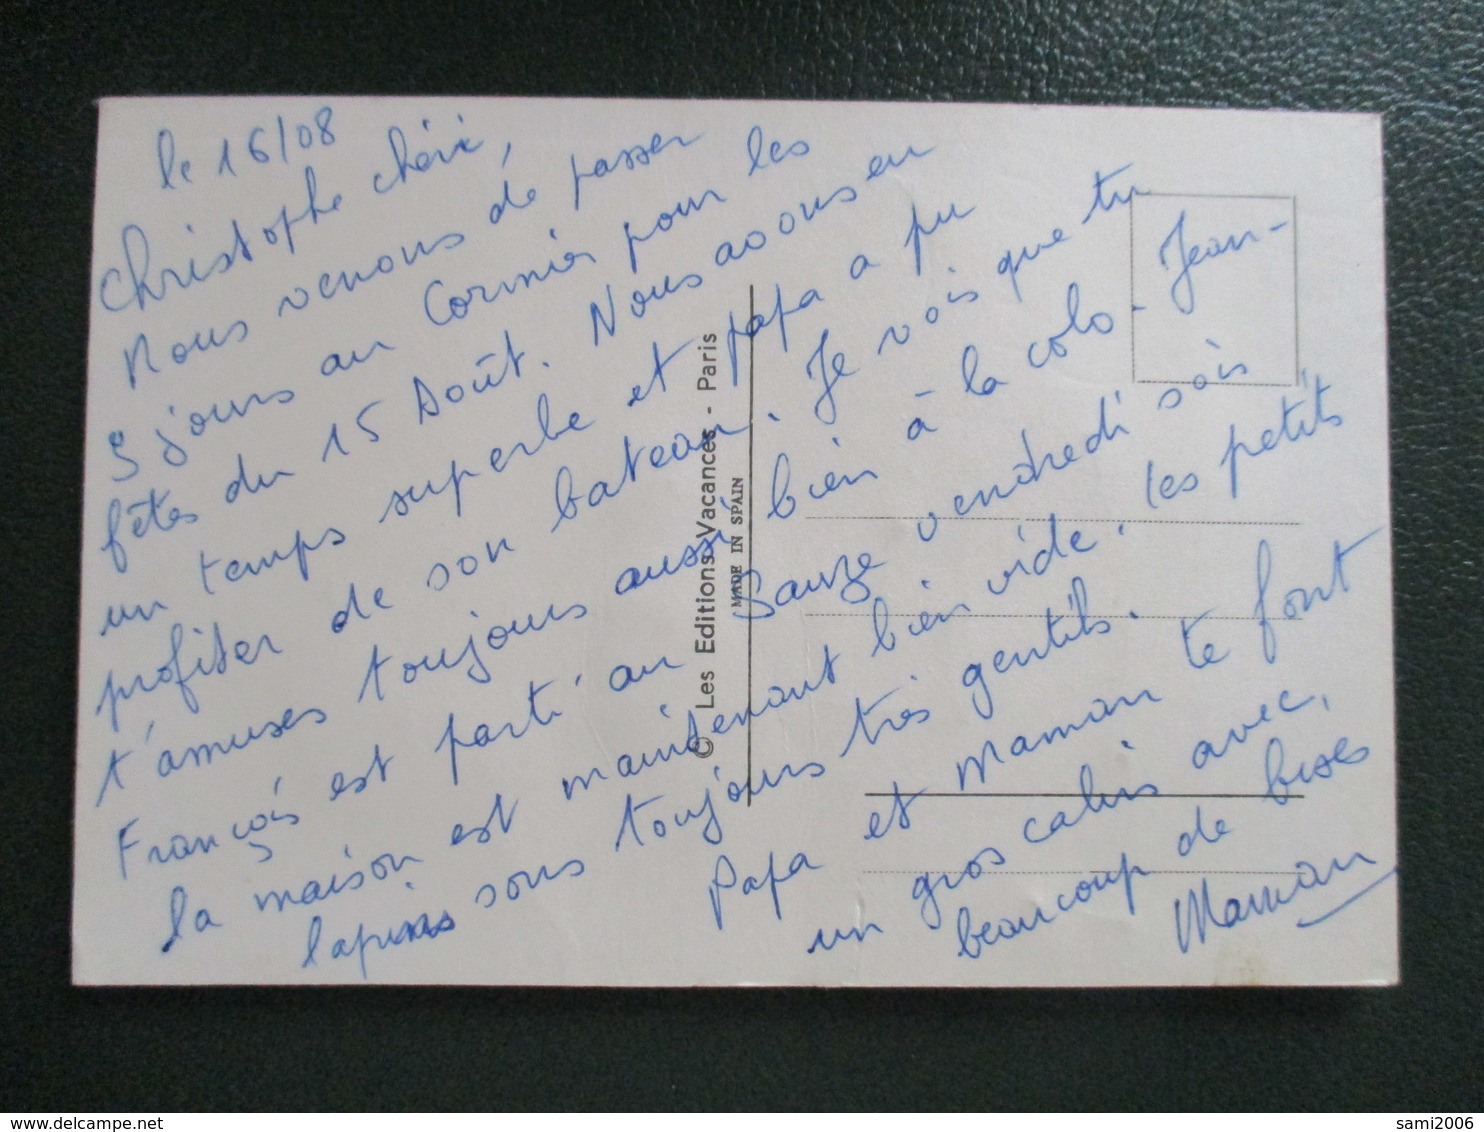 le 16/08
Christophe chéri,
Nous venons de passer
3 jours au Cormier pour les
fêtes du 15 Août. Nous avons eu
un temps superbe et papa a pu
profiter de son bateau. Je vois que tu
t'amuses toujours aussi bien à la colo. Jean-
François est parti au Sauze vendredi soir
la maison est maintenant bien vide. les petits
lapins sont toujours très gentils.
Papa et Maman te font
un gros calin avec,
beaucoup de bises
Maman
© Les Editions Vacances - Paris
MADE IN SPAIN
delcampe.net
sami2006